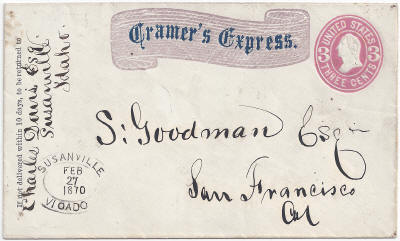 Cramer's Express.
UNITED STATES
THREE CENTS
3 3
If not delivered within 10 days, to be returned to
Charles Davis Esq
Susanville
Idaho.
S. Goodman Esq
San Francisco
Cal
SUSANVILLE
FEB
27
1870